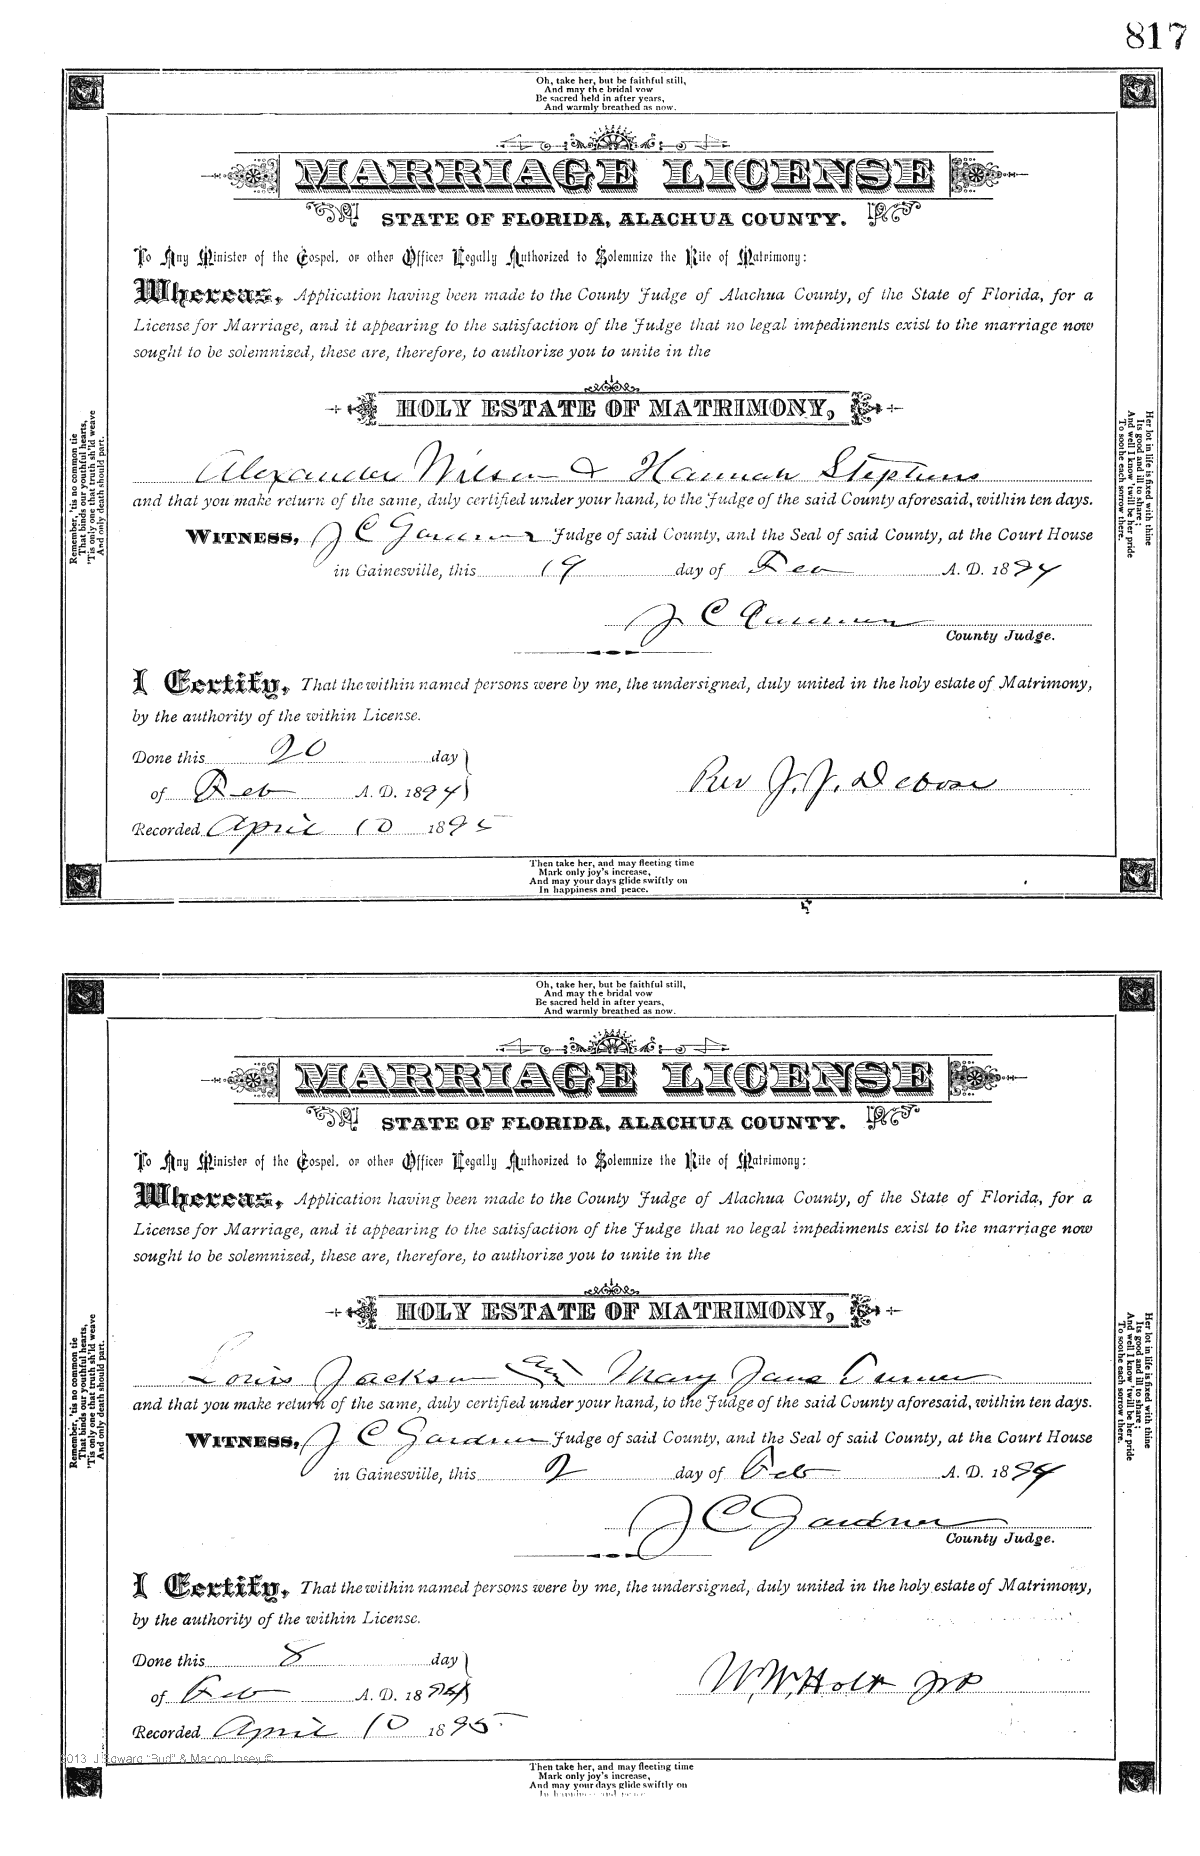 817
Oh, take her, but be faithful still,
And may the bridal vow
Be sacred held in after years,
And warmly breathed as now.
MARRIAGE LICENSE
STATE OF FLORIDA, ALACHUA COUNTY.
To Any Minister of the Gospel, or other Officer Legally Authorized to Solemnize the Rite of Matrimony:
Whereas, Application having been made to the County Judge of Alachua County, of the State of Florida, for a
License for Marriage, and it appearing to the satisfaction of the Judge that no legal impediments exist to the marriage now
sought to be solemnized, these are, therefore, to authorize you to unite in the
HOLY ESTATE OF MATRIMONY,
Alexander Wilson & Hannah Stephens
and that you make return of the same, duly certified under your hand, to the Judge of the said County aforesaid, within ten days.
WITNESS, J C Gardner Judge of said County, and the Seal of said County, at the Court House
in Gainesville, this 19 day of Feb A. D. 1894
J C Gardner
County Judge.
I Certify, That the within named persons were by me, the undersigned, duly united in the holy estate of Matrimony,
by the authority of the within License.
Done this 20 day
of Feb A. D. 1894
Rev J. J. Debose
Recorded April 10 1895
Remember, 'tis no common tie
That binds our youthful hearts,
'Tis only one that truth sh'ld weave
And only death should part.
Her lot in life is fixed with thine
Its good and ill to share;
And well I know 'twill be her pride
To soothe each sorrow there.
Then take her, and may fleeting time
Mark only joy's increase,
And may your days glide swiftly on
In happiness and peace.
Oh, take her, but be faithful still,
And may the bridal vow
Be sacred held in after years,
And warmly breathed as now.
MARRIAGE LICENSE
STATE OF FLORIDA, ALACHUA COUNTY.
To Any Minister of the Gospel, or other Officer Legally Authorized to Solemnize the Rite of Matrimony:
Whereas, Application having been made to the County Judge of Alachua County, of the State of Florida, for a
License for Marriage, and it appearing to the satisfaction of the Judge that no legal impediments exist to the marriage now
sought to be solemnized, these are, therefore, to authorize you to unite in the
HOLY ESTATE OF MATRIMONY,
Louis Jackson and Mary Jane Turner
and that you make return of the same, duly certified under your hand, to the Judge of the said County aforesaid, within ten days.
WITNESS, J C Gardner Judge of said County, and the Seal of said County, at the Court House
in Gainesville, this 2 day of Feb A. D. 1894
J C Gardner
County Judge.
I Certify, That the within named persons were by me, the undersigned, duly united in the holy estate of Matrimony,
by the authority of the within License.
Done this 8 day
of Feb A. D. 1894
W. W. Holt
Recorded April 10 1895
Remember, 'tis no common tie
That binds our youthful hearts,
'Tis only one that truth sh'ld weave
And only death should part.
Her lot in life is fixed with thine
Its good and ill to share;
And well I know 'twill be her pride
To soothe each sorrow there.
Then take her, and may fleeting time
Mark only joy's increase,
And may your days glide swiftly on
In happiness and peace